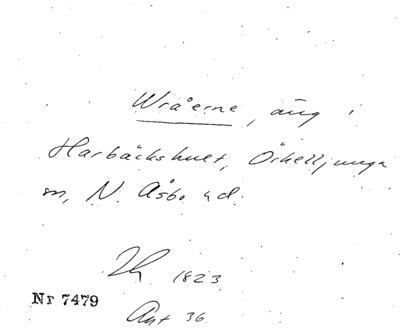 Wråerne, äng i
Harbäckshult, Örkelljunga
sn, N. Åsbo hd.
1823
Nr 7479
Akt 36